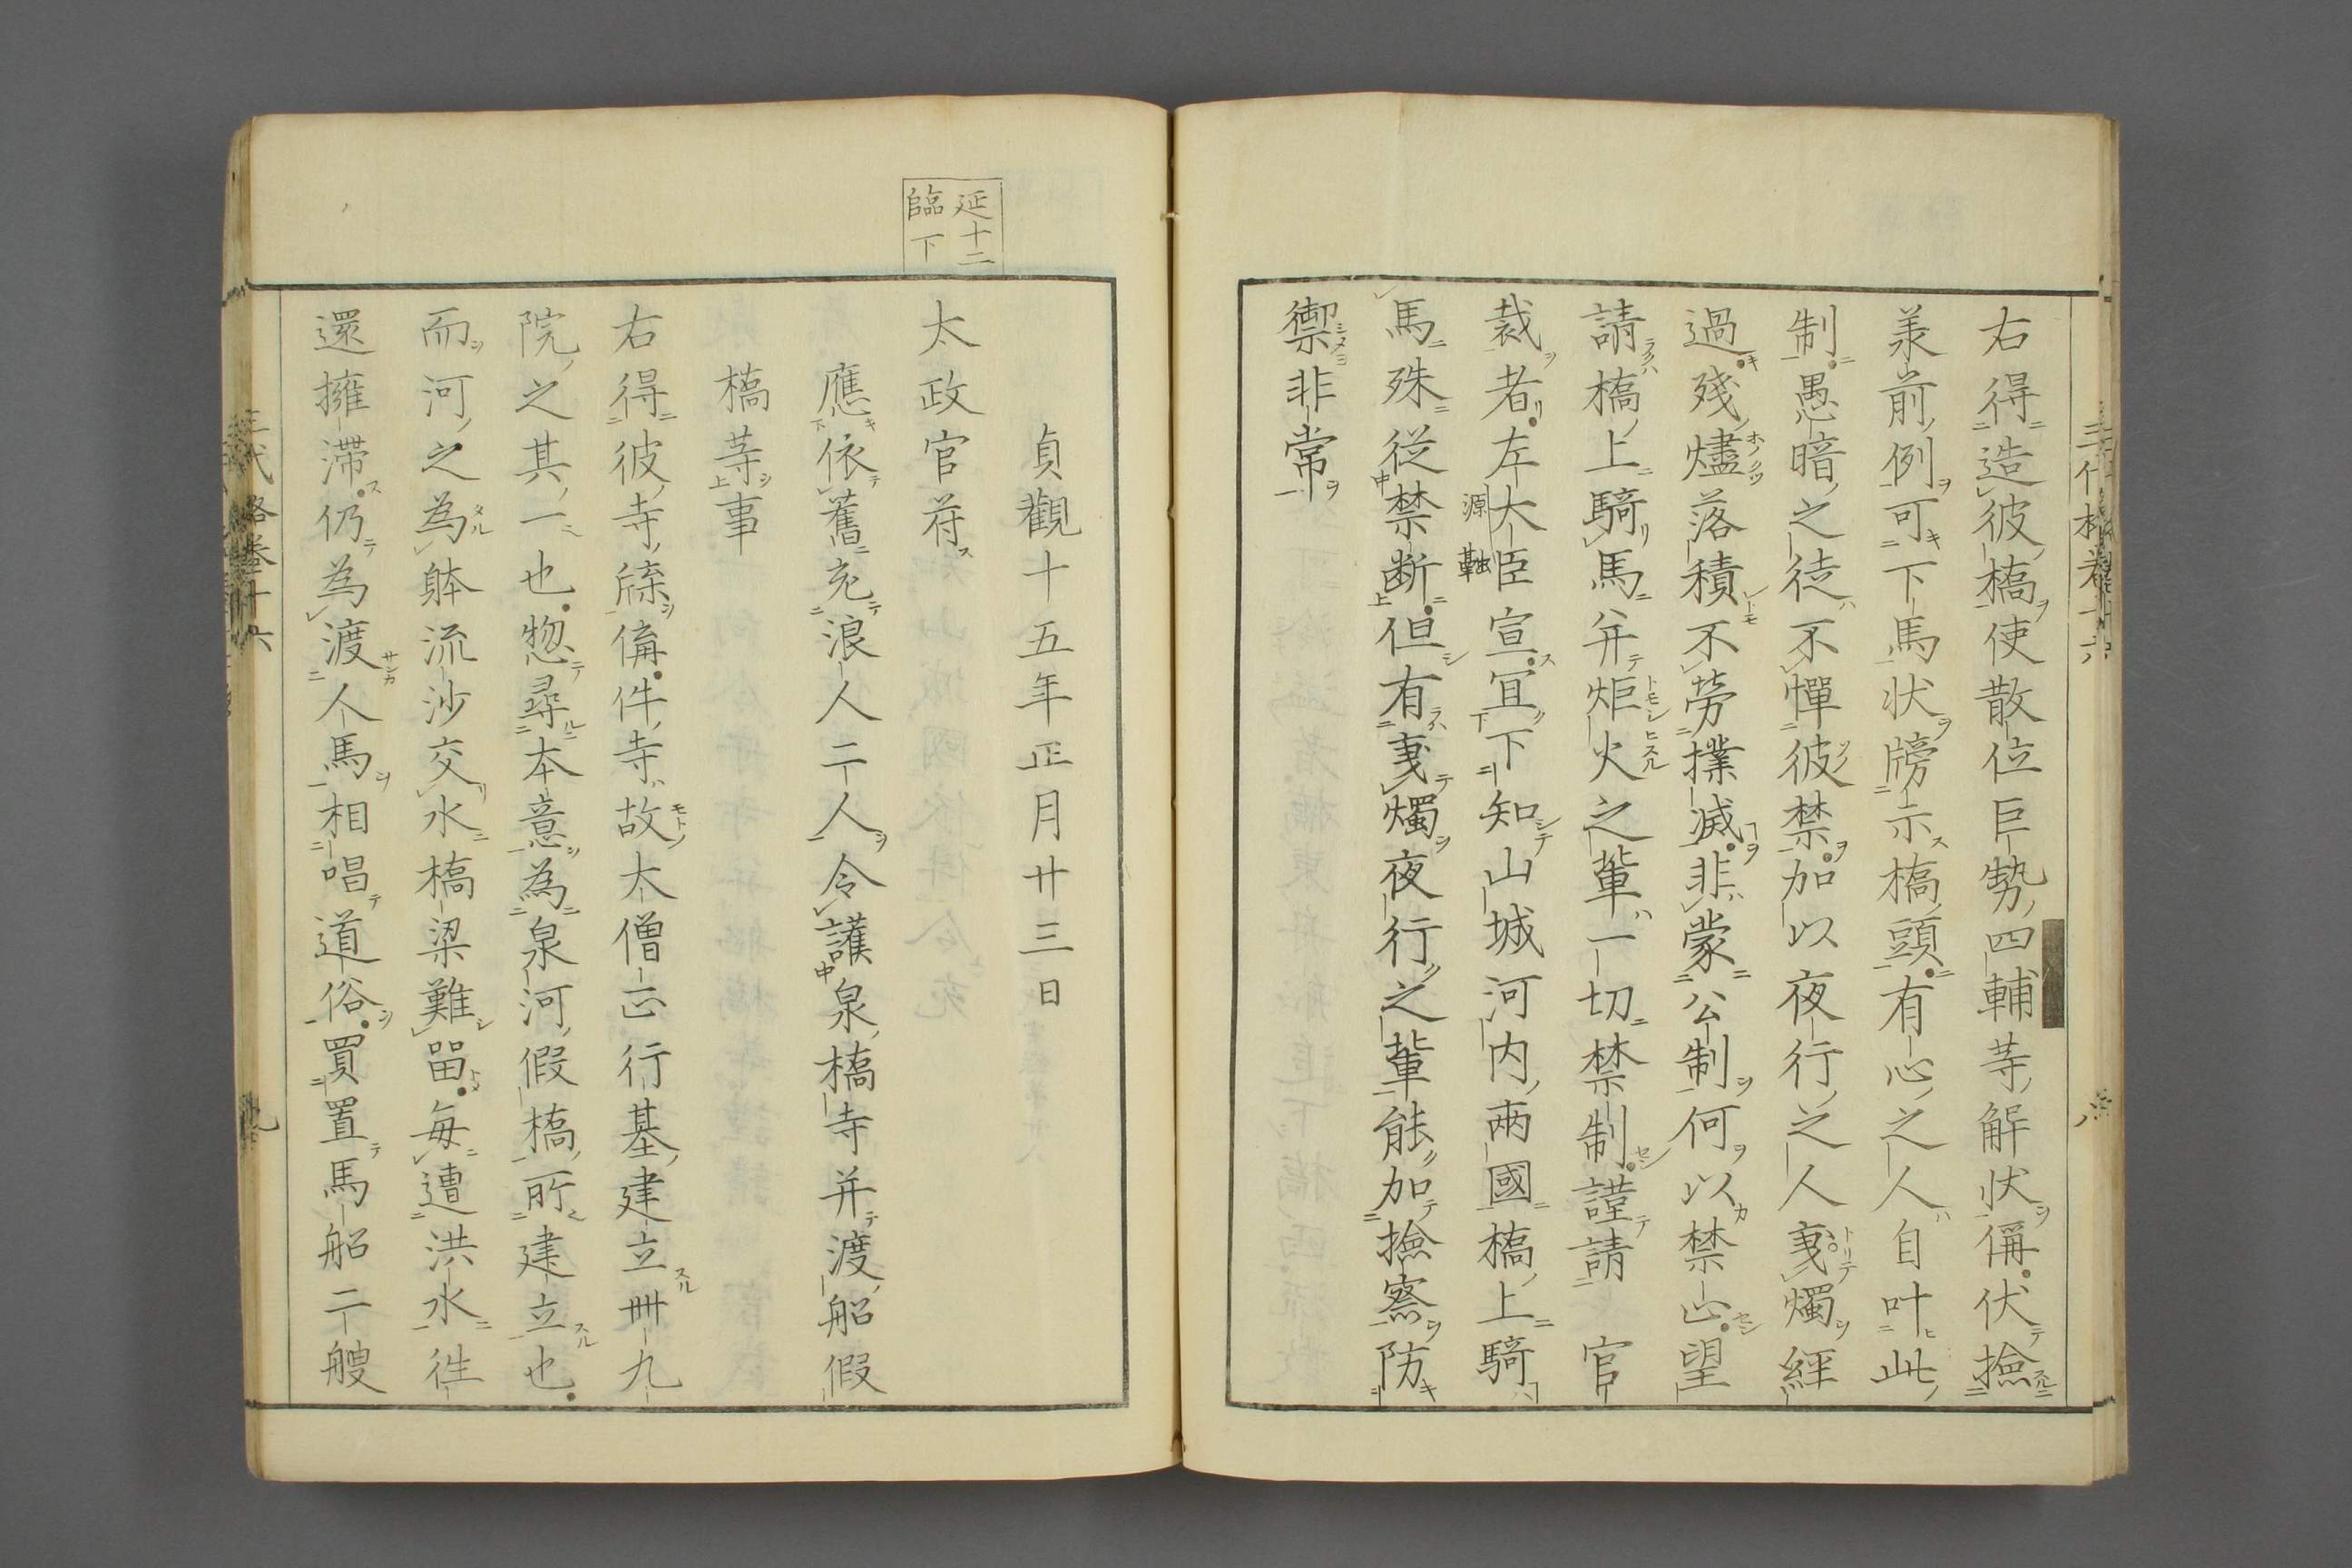 右得造彼橋使散位巨勢四輔等解状偁伏撿
羕前例可下馬状牓示橋頭有心之人自叶此
制愚暗之徒不憚彼禁加以夜行之人叓燭経
過残燼落積不労撲滅非蒙公制何以禁止望
請橋上騎馬并炬火之輩一切禁制謹請 官
裁者左大臣宣冝下知山城河内兩國橋上騎
源 融
馬殊従禁断但有叓燭夜行之輩能加撿察防
禦非常
貞觀十五年正月廿三日
延十二
臨下
太政官苻
應依舊充浪人二人令護泉橋寺并渡船假
橋等事
右得彼寺牒偁件寺故大僧正行基建立卌九
院之其一也惣尋本意為泉河假橋所建立也
而河之為躰流沙交水橋梁難留毎遭洪水徃
還擁滞仍為渡人馬相唱道俗買置馬船二艘